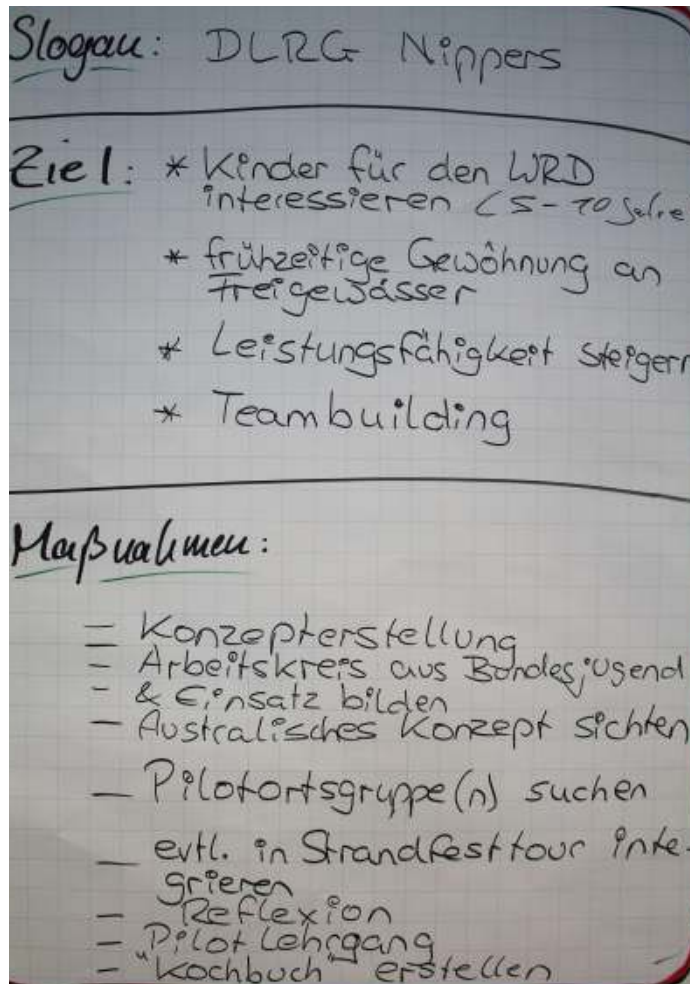 Slogan: DLRG Nippers
Ziel: * Kinder für den WRD
interessieren (5-10 Jahre
* frühzeitige Gewöhnung an
Freigewässer
* Leistungsfähigkeit steigern
* Teambuilding
Maßnahmen:
- Konzepterstellung
- Arbeitskreis aus Bundesjugend
- & Einsatz bilden
- Australisches Konzept sichten
- Pilotortsgruppe(n) suchen
- evtl. in Strandfesttour inte-
grieren
- Reflexion
- Pilot Lehrgang
- "Kochbuch" erstellen